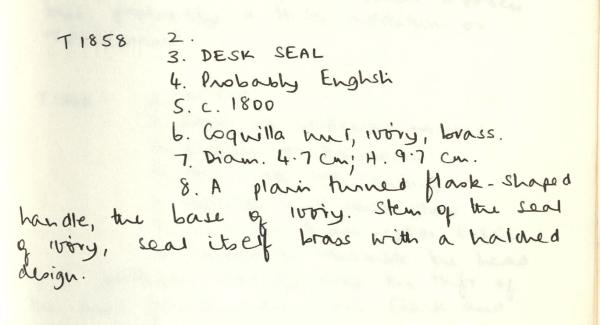 T 1858 2.
3. DESK SEAL
4. Probably English
5. c. 1800
6. Coquilla nut, ivory, brass.
7. Diam. 4.7 cm; H. 9.7 cm.
8. A plain turned flask-shaped
handle, the base of ivory. Stem of the seal
of ivory, seal itself brass with a hatched
design.